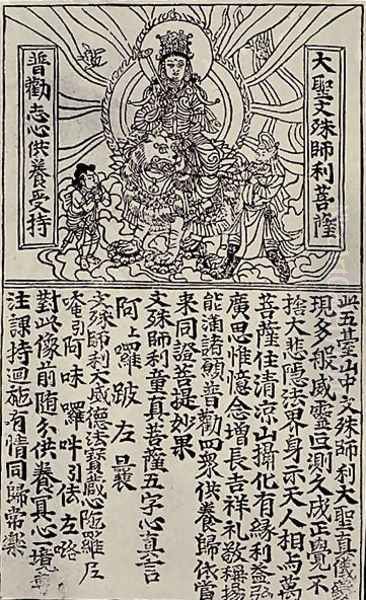 大聖文殊師利菩薩
普勸志心供養受持
此五臺山中文殊師利大聖真儀變
現多般威靈叵測久成正覺不
捨大悲隱法界身示天人相与萬
菩薩住清涼山攝化有緣利益弘
廣思惟憶念增長吉祥礼敬稱揚
能滿諸願普勸四衆供養歸依當
來同證菩提妙果
文殊師利童真菩薩五字心真言
阿上囉跛左曩
文殊師利大威德法寶藏心陁羅尼
唵引阿味囉吽引佉左咯
對此像前随分供養真心境專
注課持迴施有情同歸常樂